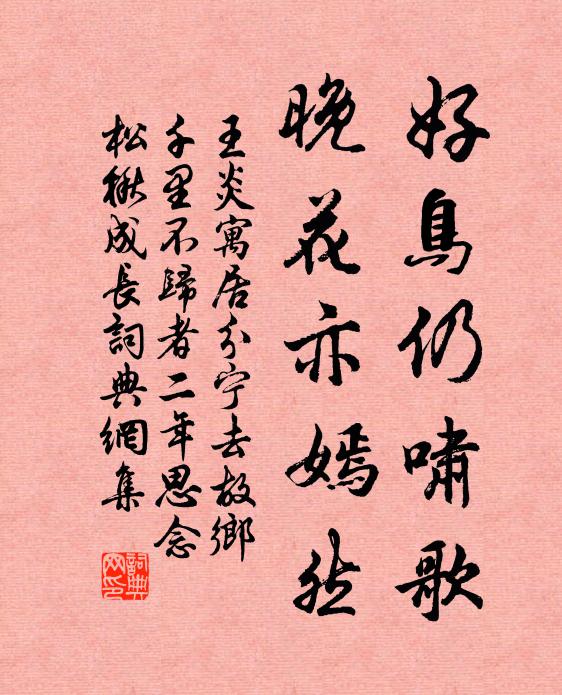 好鳥仍嘯歌
晚花亦嫣然
王炎寓居分宁去故鄉
千里不歸者二年思念
松楸成長詞典網集
詞典网印